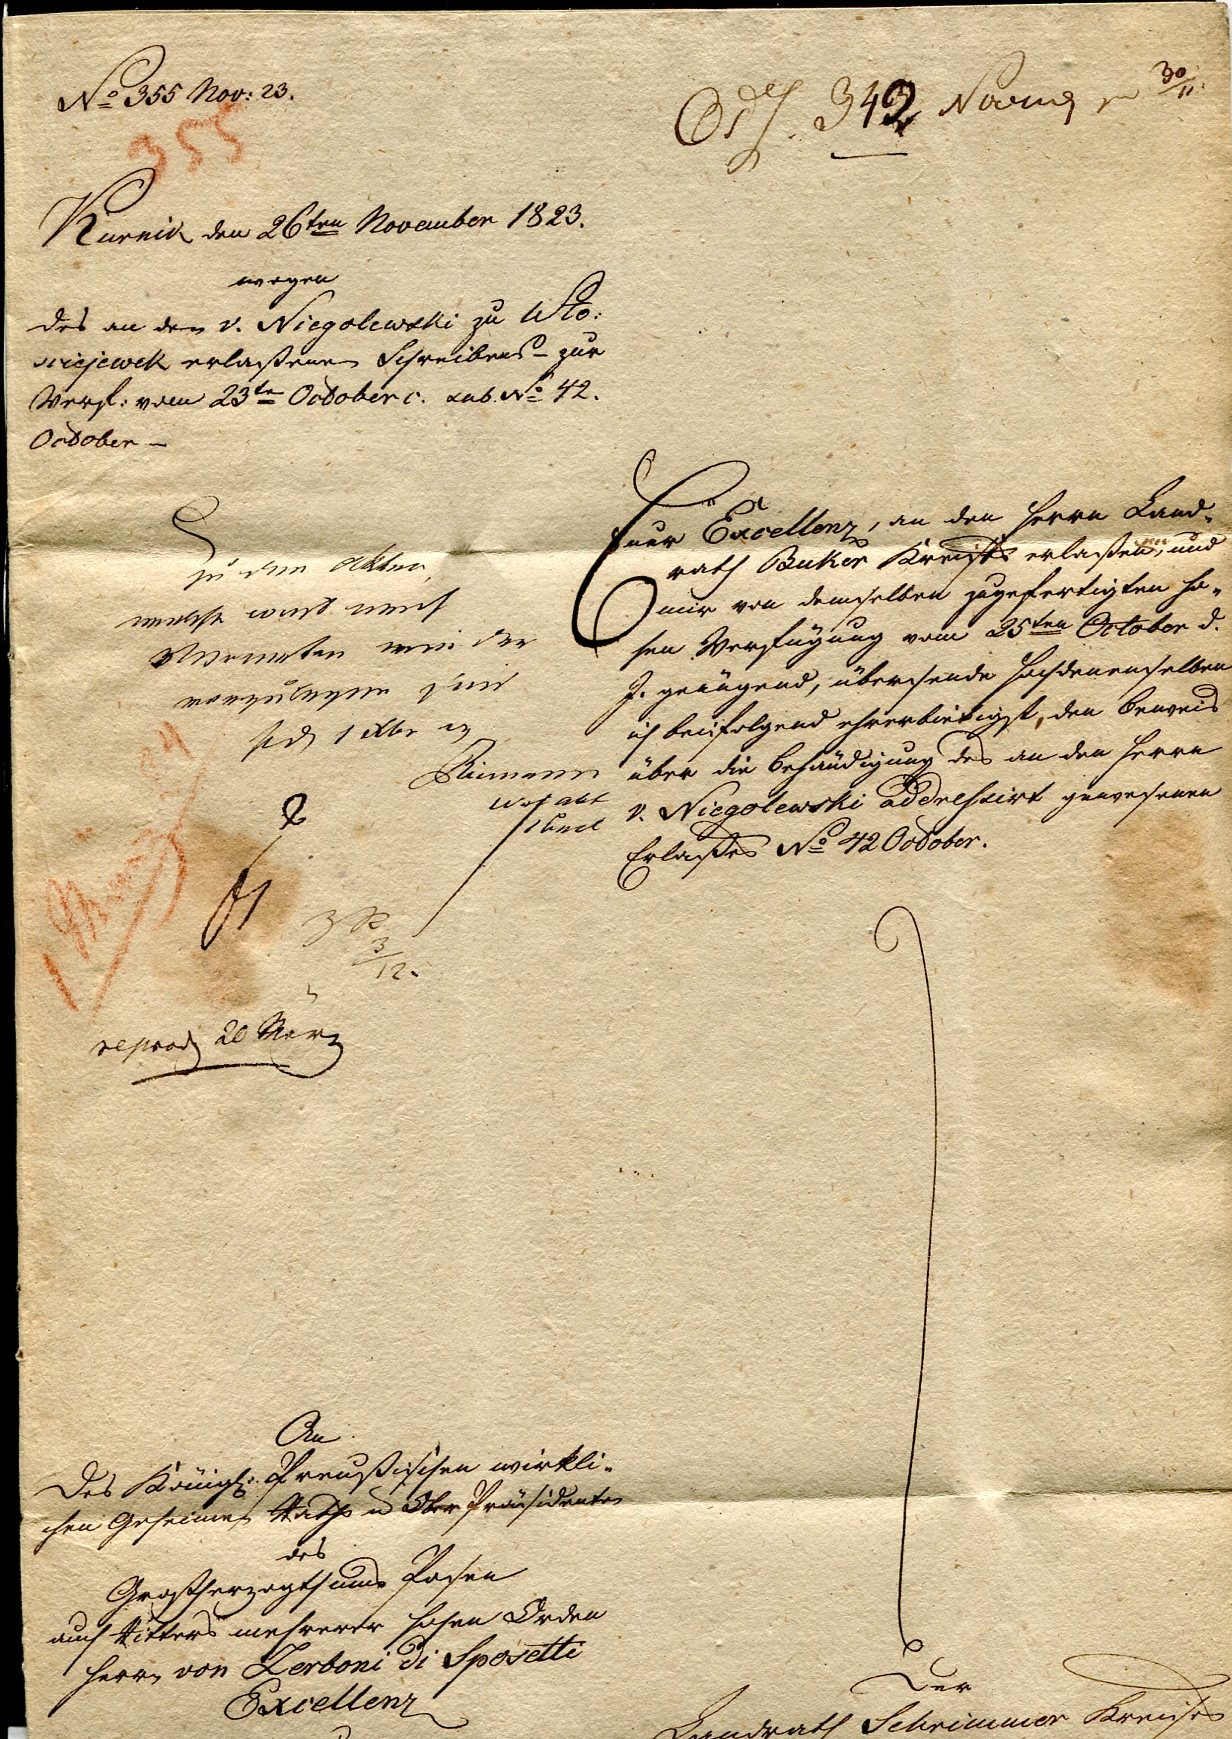 No 355 Nov: 23.
342
30/11.
355
Kurnik den 26ten November 1823.
wegen
des an den v. Niegolewski zu Wło-
sciejewek erlaßenen Schreibens – zur
Verf: vom 23ten October c. sub. No 42.
October –
Zu den Akten,
1 Xbr
3/12.
reprod 20 März
Euer Excellenz, an den Herrn Land-
rath Buker Kreises erlaßen, und
mir von demselben zugefertigten ho-
hen Verfügung vom 25ten October d.
J. genügend, übersende Hochdenenselben
ich beifolgend ehrerbietigst, den Beweis
über die Behändigung des an den Herrn
v. Niegolewski addressirt gewesenen
Erlaßes No 42 October.
An
Des Königl: Preußischen wirkli-
chen Geheimen Raths u Ober Präsidenten
des
Großherzogthums Posen
auch Ritters mehrerer hohen Orden
Herrn von Zerboni di Sposetti
Excellenz
Der
Landrath Schrimmer Kreises